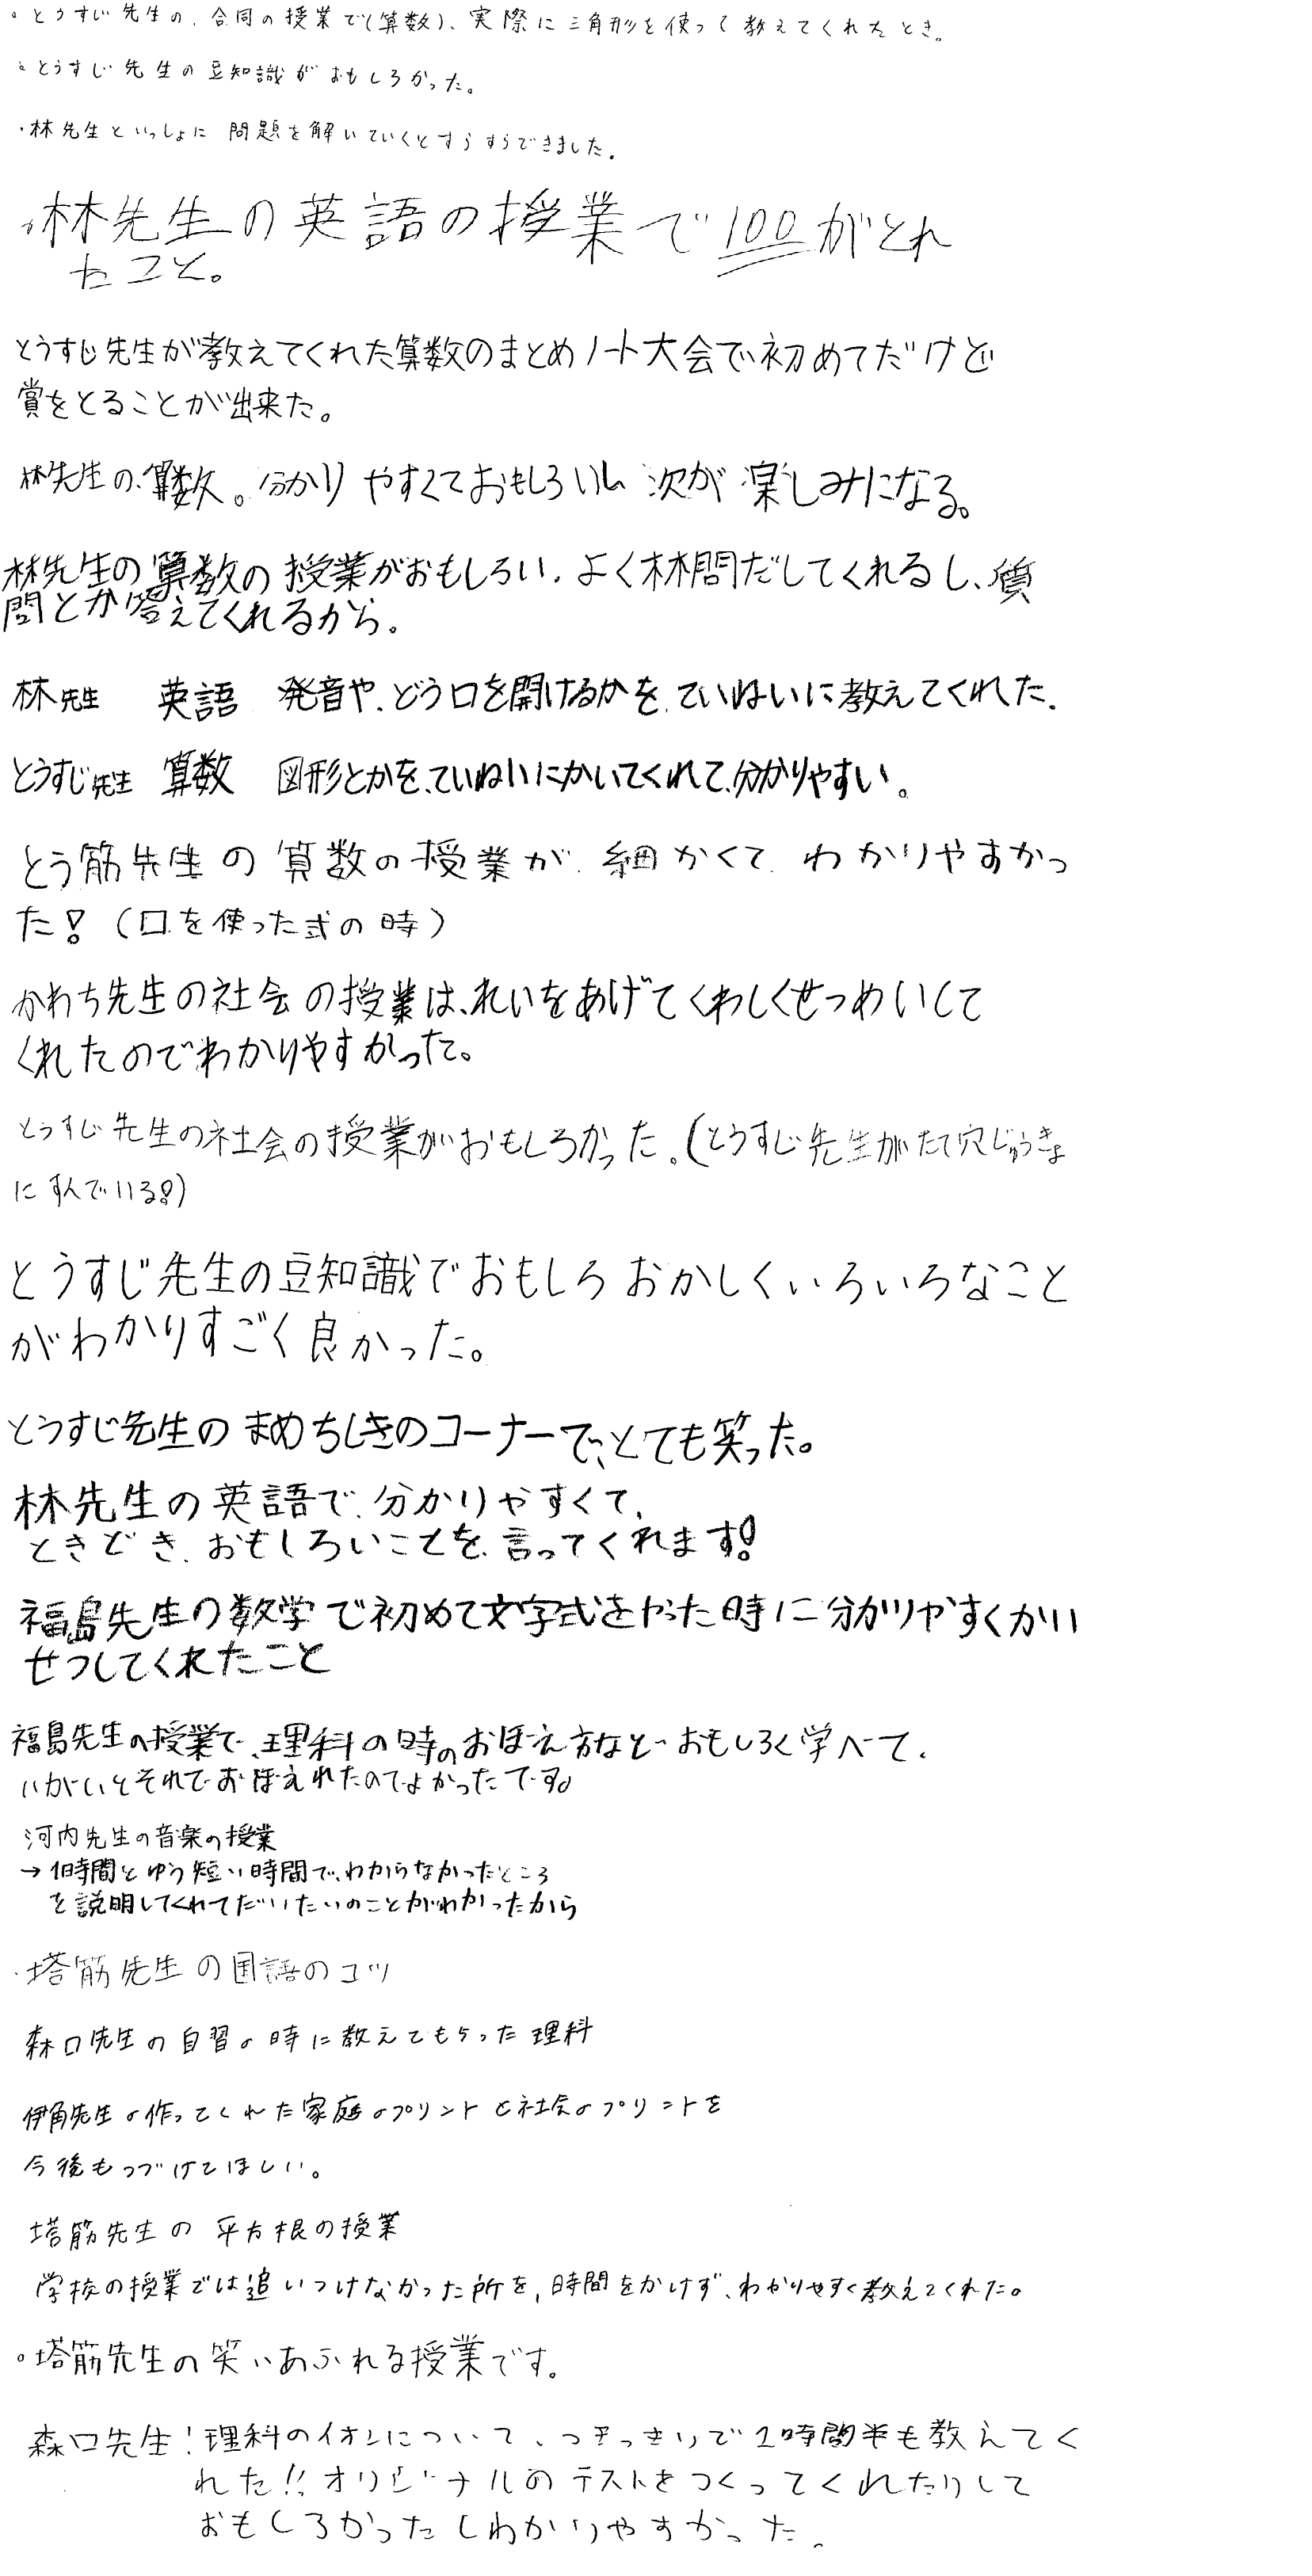 。とうすじ先生の、合同の授業で(算数)、実際に三角形を使って教えてくれたとき。
。とうすじ先生の豆知識がおもしろかった。
・林先生といっしょに問題を解いていくとすらすらできました。
・林先生の英語の授業で100がとれ
たコと。
とうすじ先生が教えてくれた算数のまとめノート大会で初めてだけど
賞をとることが出来た。
林先生の、算数。分かりやすくておもしろいし次が楽しみになる。
林先生の算数の授業がおもしろい。よく林問だしてくれるし、質
問とか答えてくれるから。
林先生 英語 発音や、どう口を開けるかを、ていねいに教えてくれた。
とうすじ先生 算数 図形とかを、ていねいにかいてくれて、分かりやすい。
とう筋先生の算数の授業が、細かくて、わかりやすかっ
た!(口を使った式の時)
かわち先生の社会の授業は、れいをあげてくわしくせつめいして
くれたのでわかりやすかった。
とうすじ先生の社会の授業がおもしろかった。(とうすじ先生がたて穴じゅうきょ
にすんでいる!)
とうすじ先生の豆知識でおもしろおかしくいろいろなこと
がわかりすごく良かった。
とうすじ先生のまめちしきのコーナーで、とても笑った。
林先生の英語で、分かりやすくて、
ときどき、おもしろいことを、言ってくれます!
福島先生の数学で初めて文字式をやった時に分かりやすくかい
せつしてくれたこと
福島先生の授業で、理科の時のおぼえ方などおもしろく学べて、
いがいとそれでおぼえれたのでよかったです。
河内先生の音楽の授業
→1時間とゆう短い時間で、わからなかったところ
を説明してくれてだいたいのことがわかったから
・塔筋先生の国語のコツ
森口先生の自習の時に教えてもらった理科
伊角先生の作ってくれた家庭のプリントと社会のプリントを
今後もつづけてほしい。
塔筋先生の平方根の授業
学校の授業では追いつけなかった所を、時間をかけず、わかりやすく教えてくれた。
。塔筋先生の笑いあふれる授業です。
森口先生!理科のイオンについて、つきっきりで1時間半も教えてく
れた!!オリジナルのテストをつくってくれたりして
おもしろかったしわかりやすかった。